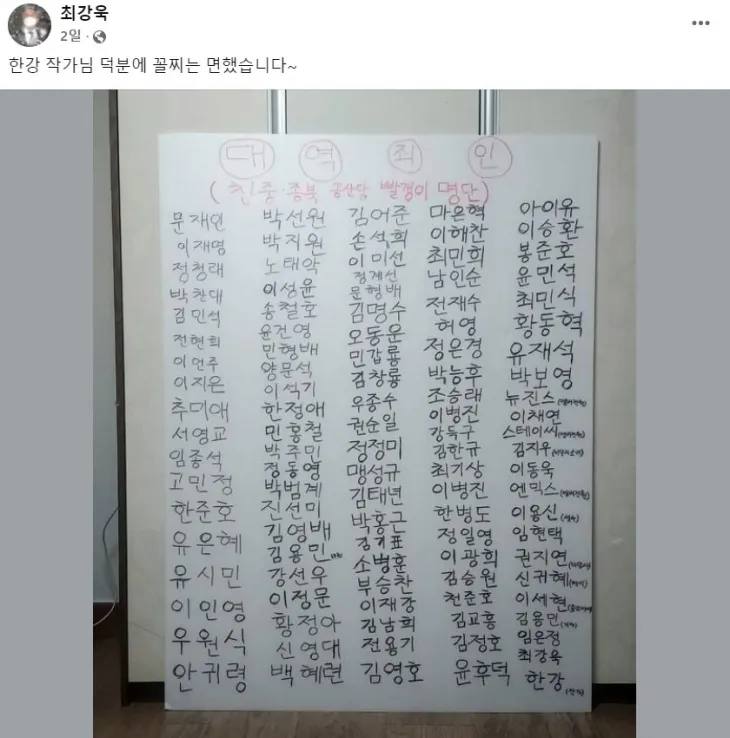 최강욱
2일
한강 작가님 덕분에 꼴찌는 면했습니다~
대역죄인
(친중·종북 공산당 빨갱이 명단)
문재인
이재명
정청래
박찬대
김민석
전현희
이언주
이지은
추미애
서영교
임종석
고민정
한준호
유은혜
유시민
이인영
우원식
안귀령
박선원
박지원
노태악
이성윤
송철호
윤건영
민형배
양문석
이석기
한정애
민홍철
박주민
정동영
박범계
진선미
김영배
김용민
강선우
이정문
황정아
신영대
백혜련
김어준
손석희
이미선
정계선
문형배
김명수
오동운
민갑룡
김창룡
우종수
권순일
정정미
맹성규
김태년
박홍근
김기표
소병훈
부승찬
이재강
김남희
전용기
김영호
마은혁
이해찬
최민희
남인순
전재수
허영
정은경
박능후
조승래
이병진
강득구
김한규
최기상
이병진
한병도
정일영
이광희
김승원
천준호
김교흥
김정호
윤후덕
아이유
이승환
봉준호
윤민석
최민식
황동혁
유재석
박보영
뉴진스(멤버전원)
이채연
스테이씨(멤버전원)
김지우
이동욱
엔믹스(멤버전원)
이용신
임현택
권지연
신귀혜
이세현
김용민
임은정
최강욱
한강(작가)